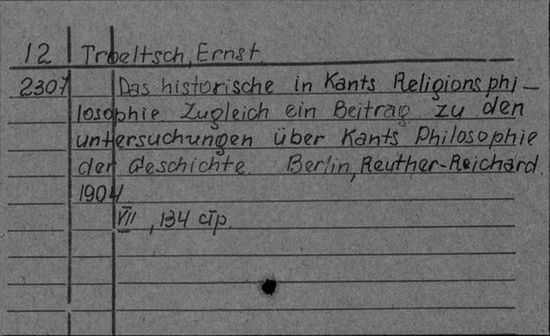 12 Troeltsch, Ernst.
2307 Das historische in Kants Religionsphi-
losophie Zugleich ein Beitrag zu den
untersuchungen über Kants Philosophie
der Geschichte. Berlin, Reuther-Reichard
1904
VII, 134 ctp.